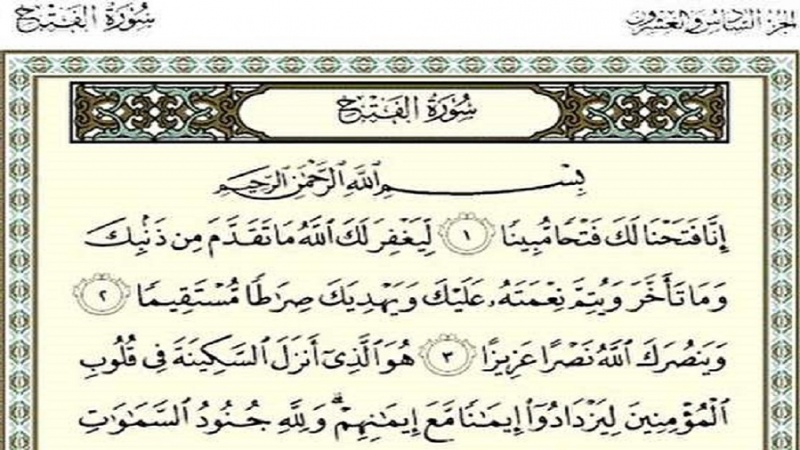 الجزء السادس والعشرون
سُورَةُ الفَتْح
سُورَةُ الفَتْح
بِسْمِ اللَّهِ الرَّحْمَٰنِ الرَّحِيمِ
إِنَّا فَتَحْنَا لَكَ فَتْحًا مُّبِينًا ١ لِّيَغْفِرَ لَكَ ٱللَّهُ مَا تَقَدَّمَ مِن ذَنۢبِكَ
وَمَا تَأَخَّرَ وَيُتِمَّ نِعْمَتَهُۥ عَلَيْكَ وَيَهْدِيَكَ صِرَٰطًا مُّسْتَقِيمًا ٢
وَيَنصُرَكَ ٱللَّهُ نَصْرًا عَزِيزًا ٣ هُوَ ٱلَّذِىٓ أَنزَلَ ٱلسَّكِينَةَ فِى قُلُوبِ
ٱلْمُؤْمِنِينَ لِيَزْدَادُوٓا۟ إِيمَٰنًا مَّعَ إِيمَٰنِهِمْ ۗ وَلِلَّهِ جُنُودُ ٱلسَّمَٰوَٰتِ